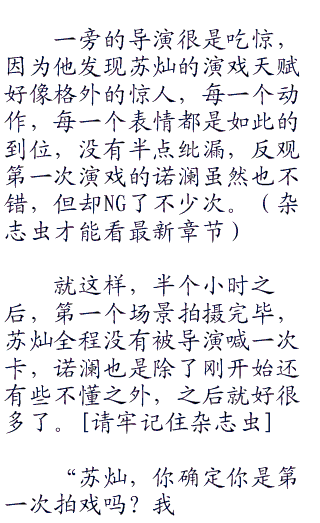 一旁的导演很是吃惊，
因为他发现苏灿的演戏天赋
好像格外的惊人，每一个动
作，每一个表情都是如此的
到位，没有半点纰漏，反观
第一次演戏的诺澜虽然也不
错，但却NG了不少次。（杂
志虫才能看最新章节）
就这样，半个小时之
后，第一个场景拍摄完毕，
苏灿全程没有被导演喊一次
卡，诺澜也是除了刚开始还
有些不懂之外，之后就好很
多了。[请牢记住杂志虫]
“苏灿，你确定你是第
一次拍戏吗？我